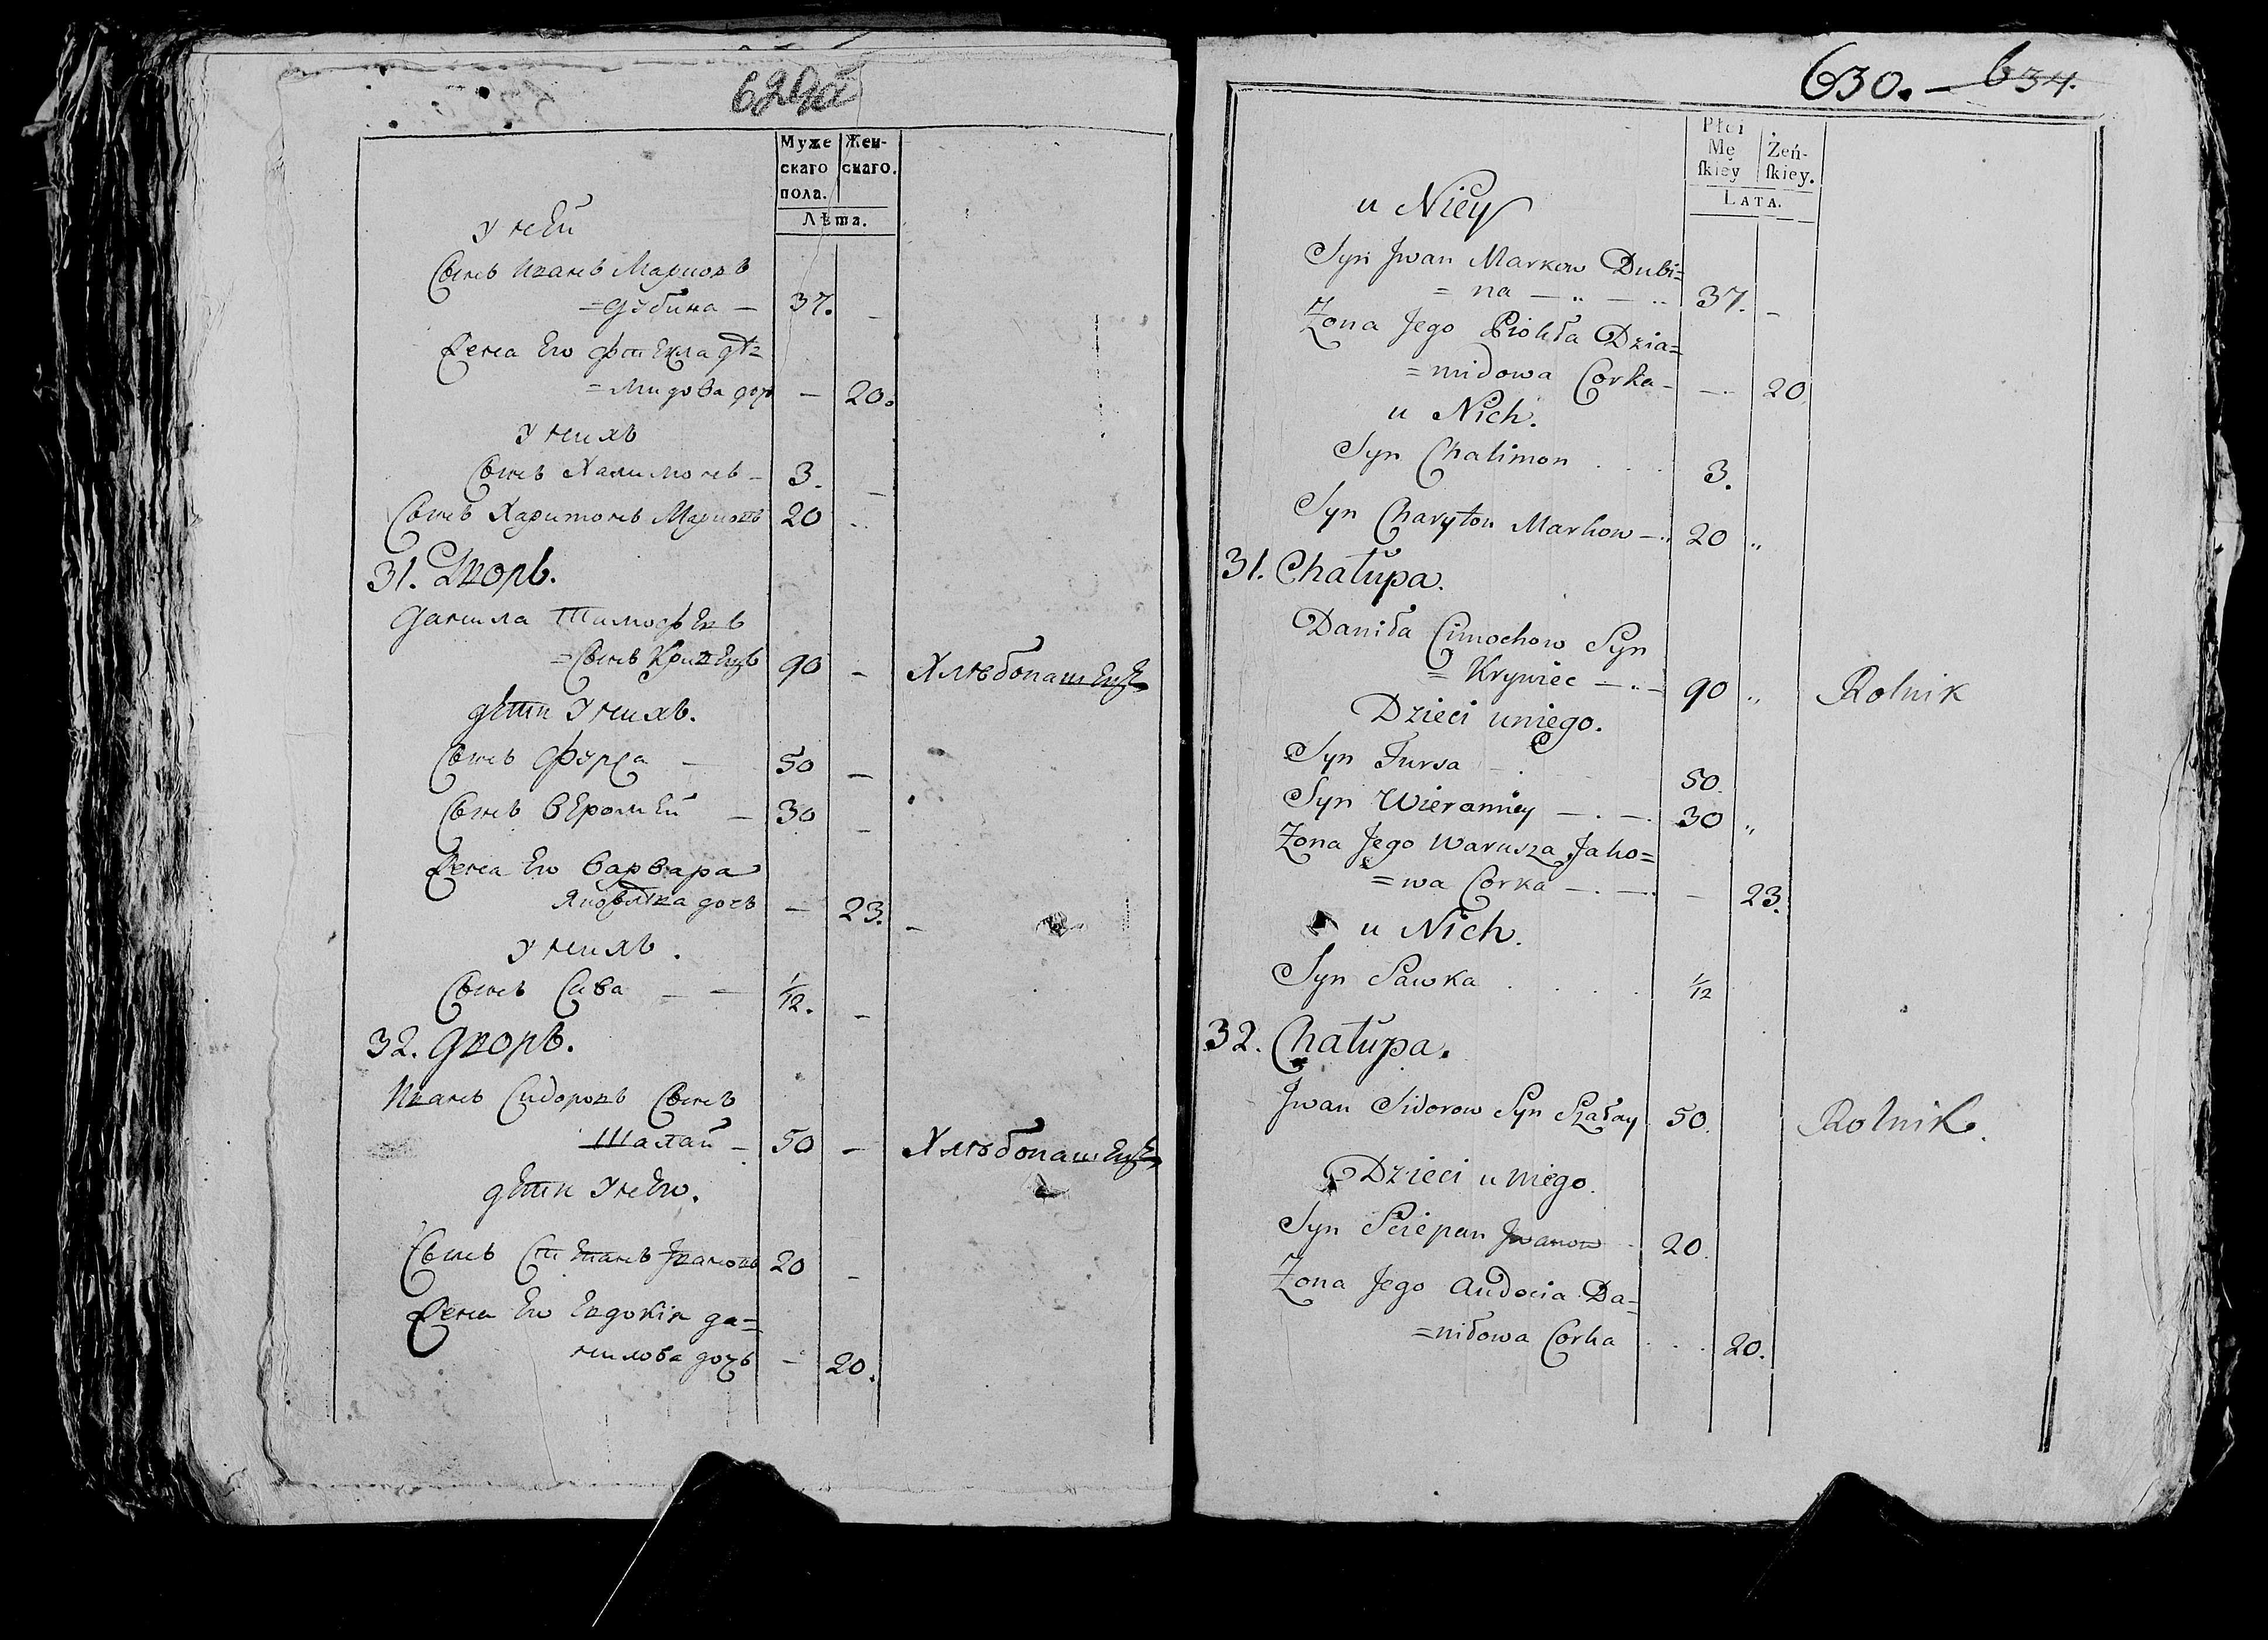 629об
Муже
скаго
пола.
Жен-
скаго.
Лѣта.
У ней
Сынъ Иванъ Марковъ
=Дубина — 37. —
Жена Его Фіокла Дѣ=
=мидова дочь — 20.
У нихъ
Сынъ Халимонъ — 3. —
Сынъ Харитонъ Марковъ 20
31. Дворъ.
Данила Тимофѣевъ
=Сынъ Кривецъ 90 — Хлѣбопашецъ
Дѣти У нихъ.
Сынъ Фурса — 50 —
Сынъ Веромей — 30 —
Жена Его Варвара
дочь — 23. —
У нихъ.
Сынъ Сава — — 1/12. —
32. Дворъ.
Иванъ Сидоровъ Сынъ
Шалай — 50 — Хлѣбопашецъ
Дѣти У него.
Сынъ Степанъ Ивановъ 20 —
Жена Его Евдокія Да=
нилова дочь — 20.
630. — 634.
Płci
Mę
ſkiey
Żeń-
ſkiey.
LATA.
u Niey
Syn Jwan Markow Dubi=
= na — „ — „ 37. —
Zona Jego Dzia=
=midowa Corka — — 20
u Nich.
Syn Chalimon . . . 3.
Syn Charyton Markow — „ 20 „
31. Chałupa.
Daniła Cimochow Syn
= Krywiec — „ — 90 „ Rolnik
Dzieci uniego.
Syn Fursa — . 50.
Syn Wieramiey — . — . 30 „
Zona Jego Warusza Jako=
=wa Corka — . — . — 23.
u Nich.
Syn Sawka . . . . 1/12
32. Chałupa.
Jwan Sidorow Syn Szałay 50. Rolnik.
Dzieci u niego.
Syn Sciepan Jwanow - 20.
Zona Jego Audocia Da=
=niłowa Corka . . . 20.